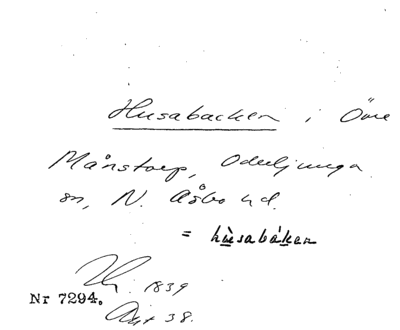 Husabacken i Övre
Månstorp, Oderljunga
sn, N. Åsbo hd.
= hùsabáken
1839
Nr 7294.
Akt 38.